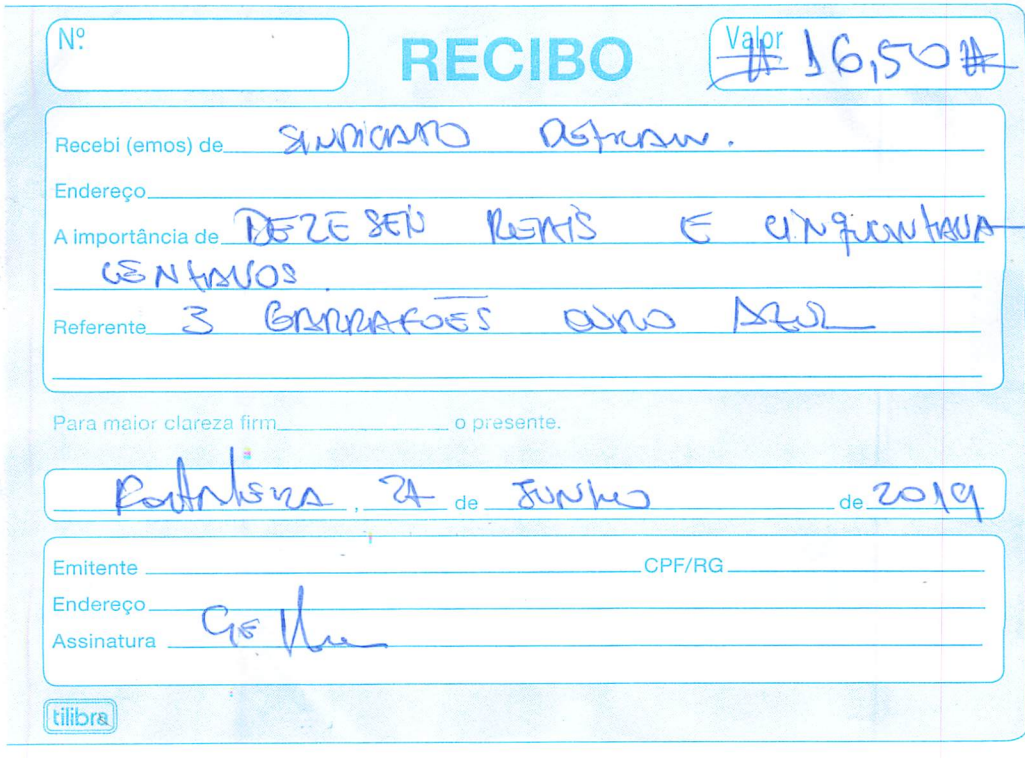 Nº
RECIBO
Valor # 16,50 #
Recebi (emos) de SINDICATO DETRAN.
Endereço
A importância de DEZESEIS REAIS E CINQUENTA
CENTAVOS.
Referente 3 GARRAFÕES OURO AZUL
Para maior clareza firm o presente.
Fortaleza, 27 de JUNHO de 2019
Emitente CPF/RG
Endereço
Assinatura
tilibra